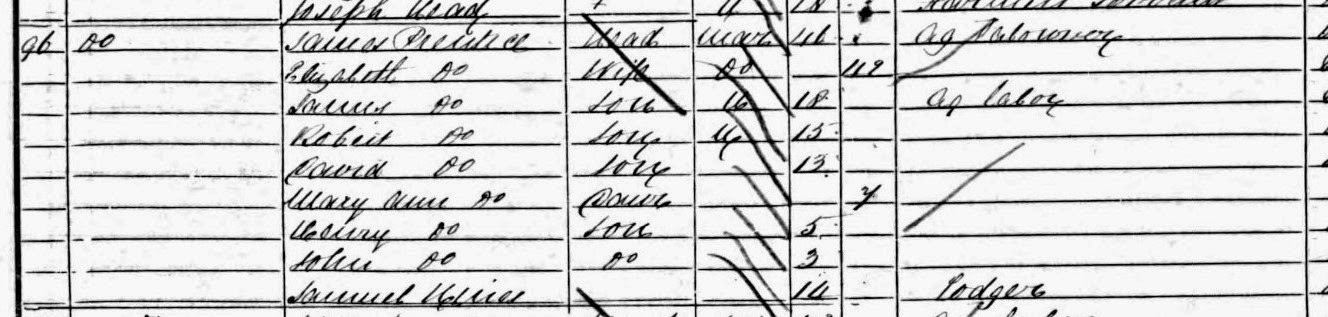 Joseph Head U 18
96 Do James Prentice Head Mar 46 Ag Labourer
Elizabeth Do Wife Do 49
James Do Son U 18 Ag labor
Robert Do Son U 15
David Do Son 13
Mary Ann Do Daur 7
Henry Do Son 5
John Do Do 3
Samuel 14 Lodger